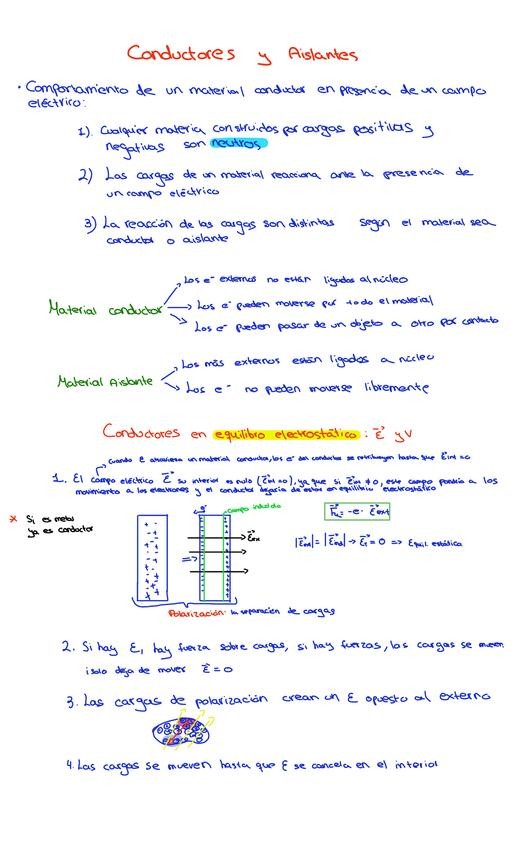 Conductores y Aislantes
• Comportamiento de un material conductor en presencia de un campo
eléctrico:
1). Cualquier materia construidos por cargas positivas y
negativas son neutros
2) Las cargas de un material reacciona ante la presencia de
un campo eléctrico
3) La reacción de las cargas son distintas según el material sea
conductor o aislante
Material conductor
Los e⁻ externos no están ligados al núcleo
Los e⁻ pueden moverse por todo el material
Los e⁻ pueden pasar de un objeto a otro por contacto
Material Aislante
Los más externos están ligados a núcleo
Los e⁻ no pueden moverse libremente
Conductores en equilibro electrostático: E⃗ y V
Cuando E atraviesa un material conductor, los e⁻ del conductor se retribuyen hasta que E⃗int = 0
1. El campo eléctrico E⃗ su interior es nulo (E⃗int = 0), ya que si E⃗int ≠ 0, este campo pondría a los
movimiento a los electrones y el conductor dejaría de estar en equilibrio electrostático
* Si es metal
ya es conductor
campo inducido
E⃗ext
= -e · E⃗ext
|E⃗ind| = |E⃗ind| → E⃗t = 0 => Equil. estática
Polarización: la separación de cargas
2. Si hay E, hay fuerza sobre cargas, si hay fuerzas, las cargas se mueven
¡solo deja de mover E⃗ = 0
3. Las cargas de polarización crean un E opuesto al externo
4. Las cargas se mueven hasta que E se cancela en el interior